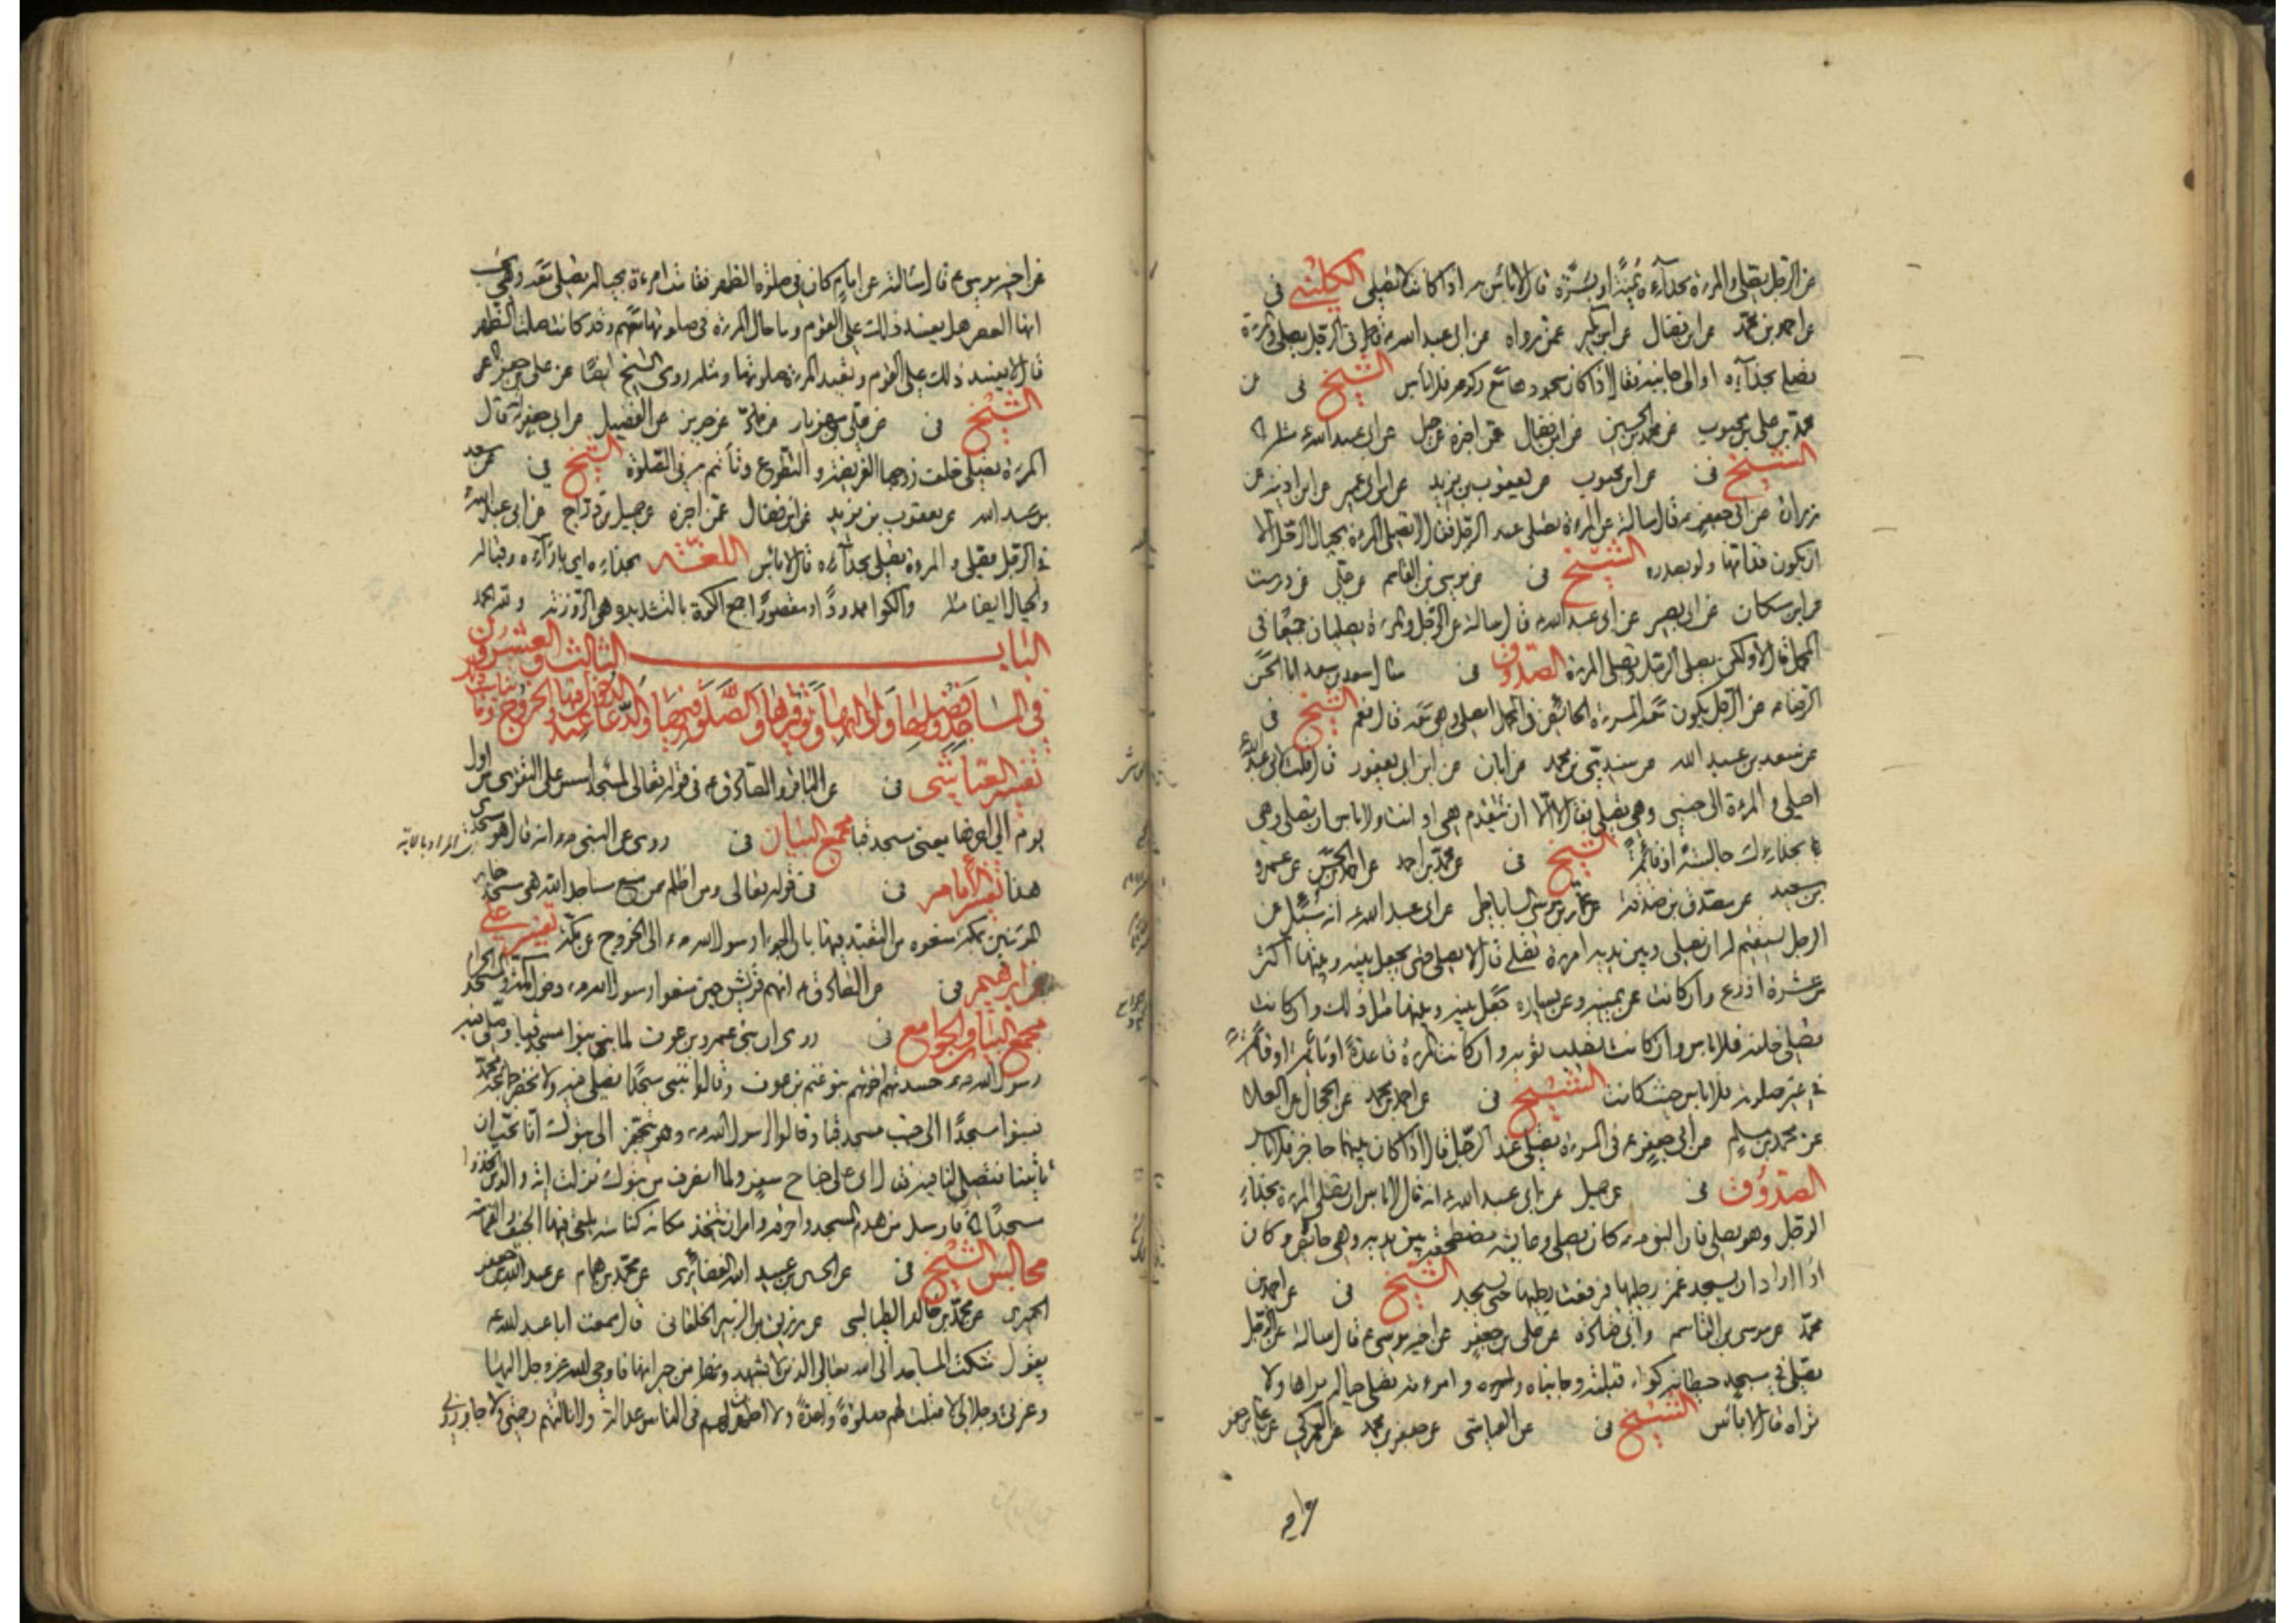 عن الرجل يصلي والمرءة بحذآءه يمنةً او يسرةً قال لا بأس به اذا كانت لا تصلي الكليني في
عن احمد بن محمد عن ابن فضال عن ابن بكير عمن رواه عن ابي عبد الله ع في الرجل يصلي والمرءة
تصلي بحذآءه او الى جانبيه فقال اذا كان سجودها مع ركوعه فلا بأس الشيخ في عن
محمد بن علي بن محبوب عن محمد بن الحسين عن ابن فضال عمن اخبره عن جميل عن ابي عبد الله ع مثله
الشيخ في عن ابن محبوب عن يعقوب بن يزيد عن ابن ابي عمير عن ابن اذينه عن
زرارة عن ابي جعفر ع قال سالته عن المرءة تصلي عند الرجل فقال لا تصلي المرءة بحيال الرجل الا
ان يكون قدامها ولو بصدره الشيخ في عن موسى بن القاسم عن علي عن درست
عن ابن مسكان عن ابي بصير عن ابي عبد الله ع قال سالته عن الرجل والمرءة يصليان جميعًا في
المحمل قال لا ولكن يصلي الرجل وتصلي المرءة الصدوق في سال سعيد بن سعد ابا الحسن
الرضا ع عن الرجل يكون معه المرءة الحائض في المحمل ايصلي وهي معه قال نعم الشيخ في
عن سعد بن عبد الله عن سندي بن محمد عن ابان عن ابن ابي يعفور قال قلت لابي عبد الله ع
اصلي والمرءة الى جنبي وهي تصلي فقال لا الا ان تتقدم هي او انت ولا باس ان تصلي وهي
بحذاءك جالسة او قائمة الشيخ في عن محمد بن احمد عن احمد بن الحسن عن عمرو
بن سعيد عن مصدق بن صدقة عن عمار بن موسى الساباطي عن ابي عبد الله ع انه سئل عن
الرجل يستقيم له ان يصلي وبين يديه امرءة تصلي قال لا يصلي حتى يجعل بينه وبينها اكثر
من عشرة اذرع وان كانت عن يمينه وعن يساره جعل بينه وبينها مثل ذلك وان كانت
تصلي خلفه فلا باس وان كانت تصيب ثوبه وان كانت المرءة قاعدةً او نائمةً او قائمةً
في غير صلوة فلا باس حيث كانت الشيخ في عن احمد بن محمد عن الحجال عن العلا
عن محمد بن مسلم عن ابي جعفر ع في المرءة تصلي عند الرجل قال اذا كان بينهما حاجز فلا باس
الصدوق في عن جميل عن ابي عبد الله ع انه قال لا باس ان تصلي المرءة بحذاء
الرجل وهو يصلي فان النبي ص كان يصلي وعايشه مضطجعة بين يديه وهي حائض وكان
اذا اراد ان يسجد غمز رجليها فرفعت رجليها حتى يسجد الشيخ في عن احمد بن
محمد عن موسى بن القاسم وابي قتادة عن علي بن جعفر عن اخيه موسى ع قال سالته عن الرجل
يصلي في مسجد حيطانه كواء قبلته وجانباه وامرءته تصلي حياله يراها ولا
تراه قال لا بأس الشيخ في عن العياشي عن جعفر بن محمد عن العمركي عن علي بن جعفر
عن اخيه موسى ع قال سالته عن امام كان في صلوة الظهر فقامت امرءة بحياله تصلي معه وهي تحسب
انها العصر هل يفسد ذلك على القوم وما حال المرءة في صلوتها معهم وقد كانت صلت الظهر
قال لا يفسد ذلك على القوم وتعيد المرءة صلوتها ومثله روى الشيخ ايضًا عن علي بن جعفر
الشيخ في عن علي بن مهزيار عن فضالة عن حريز عن الفضيل عن ابي جعفر ع قال
المرءة تصلي خلف زوجها الفريضة والتطوع وتأتم به في الصلوة الشيخ في عن سعد
بن عبد الله عن يعقوب بن يزيد عن ابن فضال عمن اخبره عن جميل بن دراج عن ابي عبد الله ع
في الرجل يصلي والمرءة تصلي بحذآءه قال لا بأس اللغة بحذاءه اي بازاءه وقباله
والحيال ايضا مثله والكوا ممدودًا او مقصورًا جمع الكوة بالتشديد وهي الروزنة
البـاب الثالث والعشرون
في المساجد وفضلها
تفسير العياشي في عن الباقر والصادق ع في قوله تعالى لمسجد اسس على التقوى من اول
يوم يعني مسجد قبا مجمع البيان في روى عن النبي ص انه قال هو مسجدي
هذا تفسير الامام في في قوله تعالى ومن اظلم ممن منع مساجد الله هي مساجد خيار
المؤمنين بمكة منعوهم من التعبد فيها بان الجؤا رسول الله ص الى الخروج عن مكة تفسير علي
بن ابرهيم في عن الصادق ع انهم قريش حين منعوا رسول الله ص دخول مكة والمسجد الحرام
مجمع البيان والجوامع في روى ان بني عمرو بن عوف لما بنوا مسجد قبا وصلى فيه
رسول الله ص حسدتهم اخوتهم بنو غنم بن عوف وقالوا نبني مسجدًا نصلي فيه ولا نحضر جماعة محمد
فبنوا مسجدًا الى جنب مسجد قبا وقالوا لرسول الله ص وهو يتجهز الى تبوك انا نحب ان
تاتينا فتصلي لنا فيه فقال اني على جناح سفر ولما انصرف من تبوك نزلت والذين اتخذوا
مسجدًا فارسل من هدم المسجد واحرقه وامر ان يتخذ مكانه كناسة يلقى فيها الجيف والقمامة
مجالس الشيخ في عن الحسين بن عبيد الله الغضائري عن محمد بن همام عن عبد الله بن جعفر
الحميري عن محمد بن خالد الطيالسي عن رزيق بن الزبير الخلقاني قال سمعت ابا عبد الله ع
يقول شكت المساجد الى الله تعالى الذين لا يشهدونها من جيرانها فاوحى الله عز وجل اليها
وعزتي وجلالي لا قبلت لهم صلوةً واحدةً ولا اظهرت لهم في الناس عدالة ولا نالتهم رحمتي ولا جاوروني